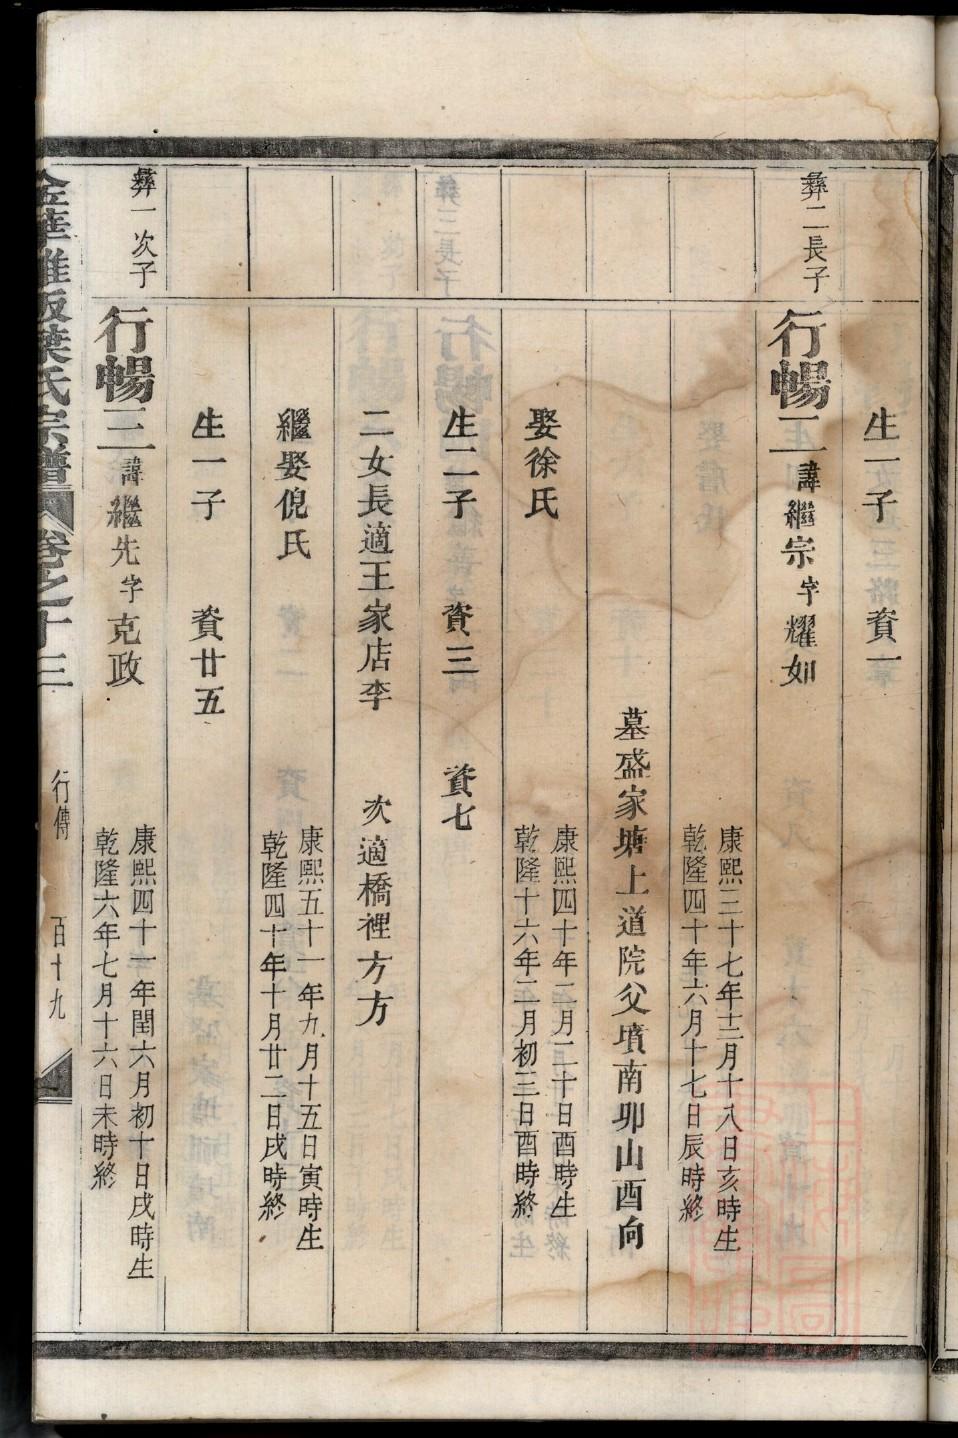 生一子 賚一
彝二長子
行暢二 諱繼宗字耀如
康熙三十七年十二月十八日亥時生
乾隆四十年六月十七日辰時終
墓盛家塘上道院父墳南卯山酉向
娶徐氏
康熙四十年二月二十日酉時生
乾隆十六年二月初三日酉時終
生二子 賚三 賚七
二女長適王家店李 次適橋裡方方
繼娶倪氏
康熙五十一年九月十五日寅時生
乾隆四十年十月廿二日戌時終
生一子 賚廿五
彝一次子
行暢三 諱繼先字克政
康熙四十一年閏六月初十日戌時生
乾隆六年七月十六日未時終
金華 葉氏宗譜 卷之十三 行傳 百十九